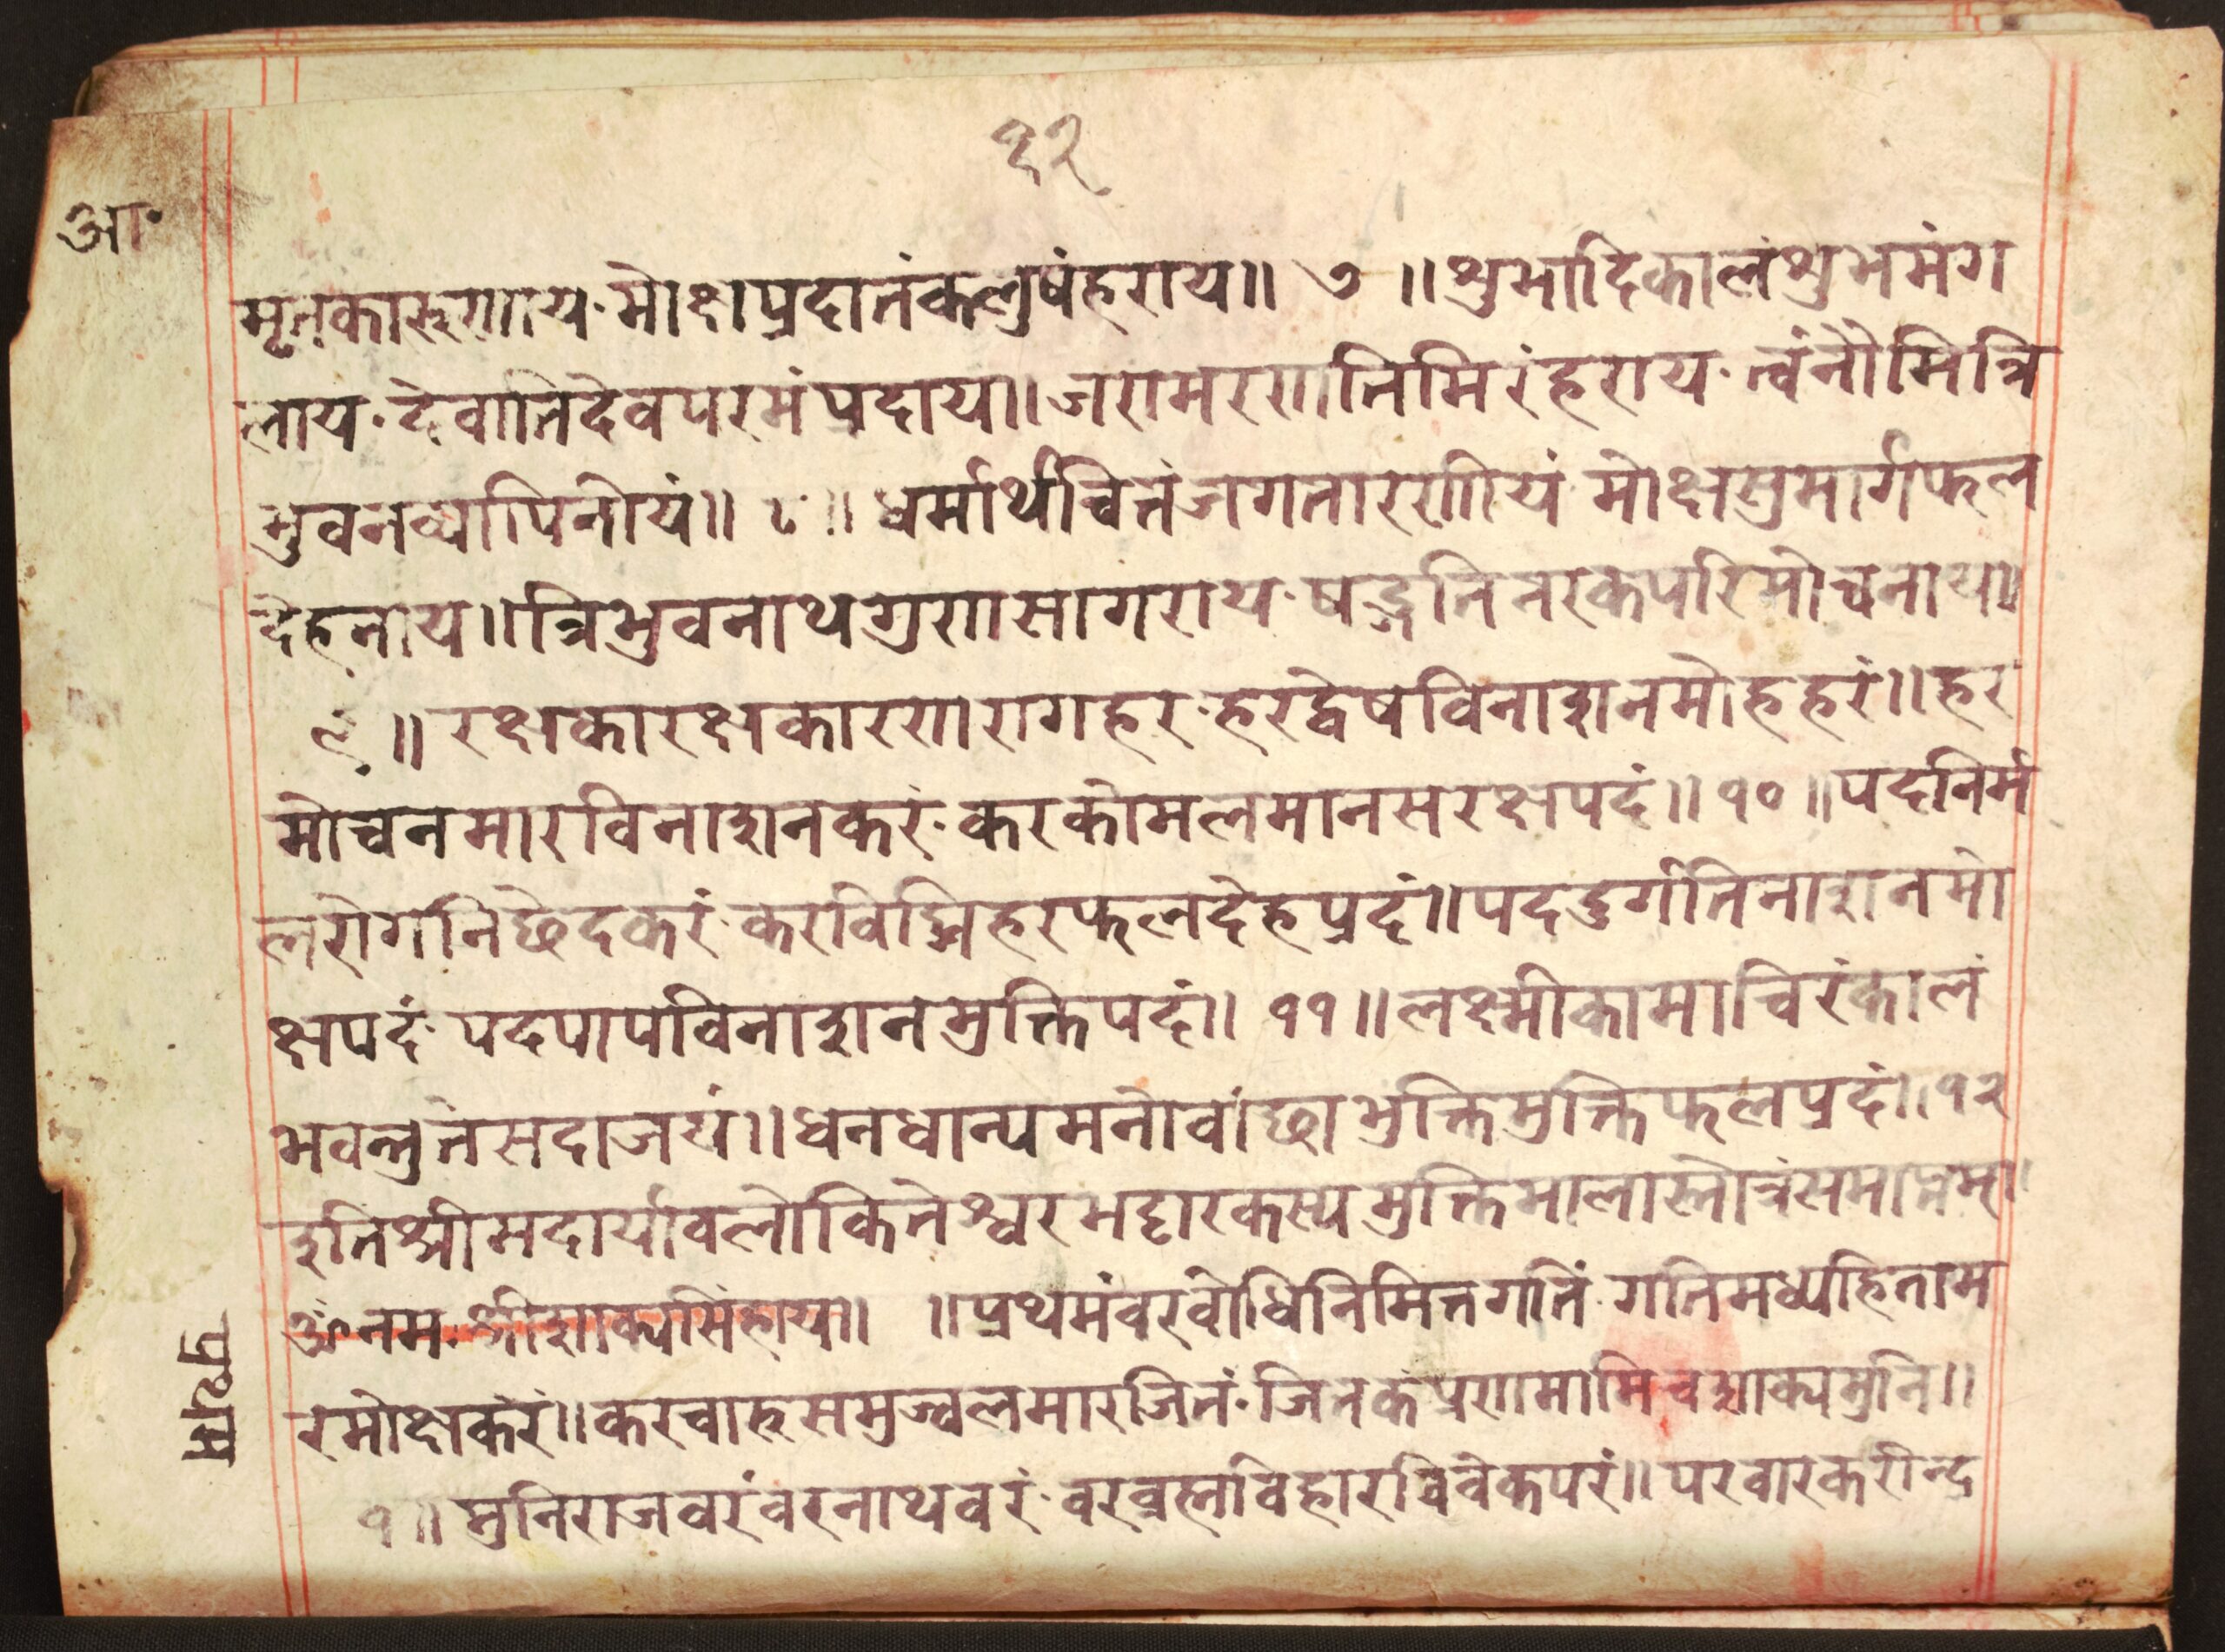 १२
आ॰
मृतकारुणाय·मोक्षप्रदातंकलुषंहराय॥ ७ ॥शुभादिकालंशुभमंग
लाय·देवातिदेवपरमंप्रदाय॥जरामरणतिमिरंहराय·त्वंनौमित्रि
भुवनव्यापिनीयं॥ ८ ॥ धर्मार्थचित्तंजगतारणीयं मोक्षसुमार्गफल
देहनाय॥त्रिभुवनाथगुणसागराय·षड्गतिनरकपरिमोचनाय॥
९ ॥ रक्षकारक्षकारणरागहर·हरद्वेषविनाशनमोहहरं॥हर
मोचनमारविनाशनकरं·करकोमलमानसरक्षपदं॥ १० ॥पदनिर्म
लरोगनिछेदकरं·करविघ्निहरफलदेहप्रदं॥पददुर्गतिनाशनमो
क्षपदं·पदपापविनाशनमुक्तिपदं॥ ११ ॥लक्ष्मीकामाचिरंकालं
भवन्तुतेसदाजयं॥धनधान्यमनोवांछाभुक्तिमुक्तिफलप्रदं॥१२
इतिश्रीमदार्यावलोकितेश्वरभट्टारकस्यमुक्तिमालास्तोत्रंसमाप्तम्॥
ॐनमःश्रीशाक्यसिंहाय॥ ॥प्रथमंवरबोधिनिमित्तगतिं·गतिमध्यहिताम
रमोक्षकरं॥करचारुसमुज्वलमारजितं·जितकंप्रणमामिचशाक्यमुनि॥
१ ॥ मुनिराजवरंवरनाथवरं·वरवुस्तविहारविवेकपरं॥परवारकरीन्द्र